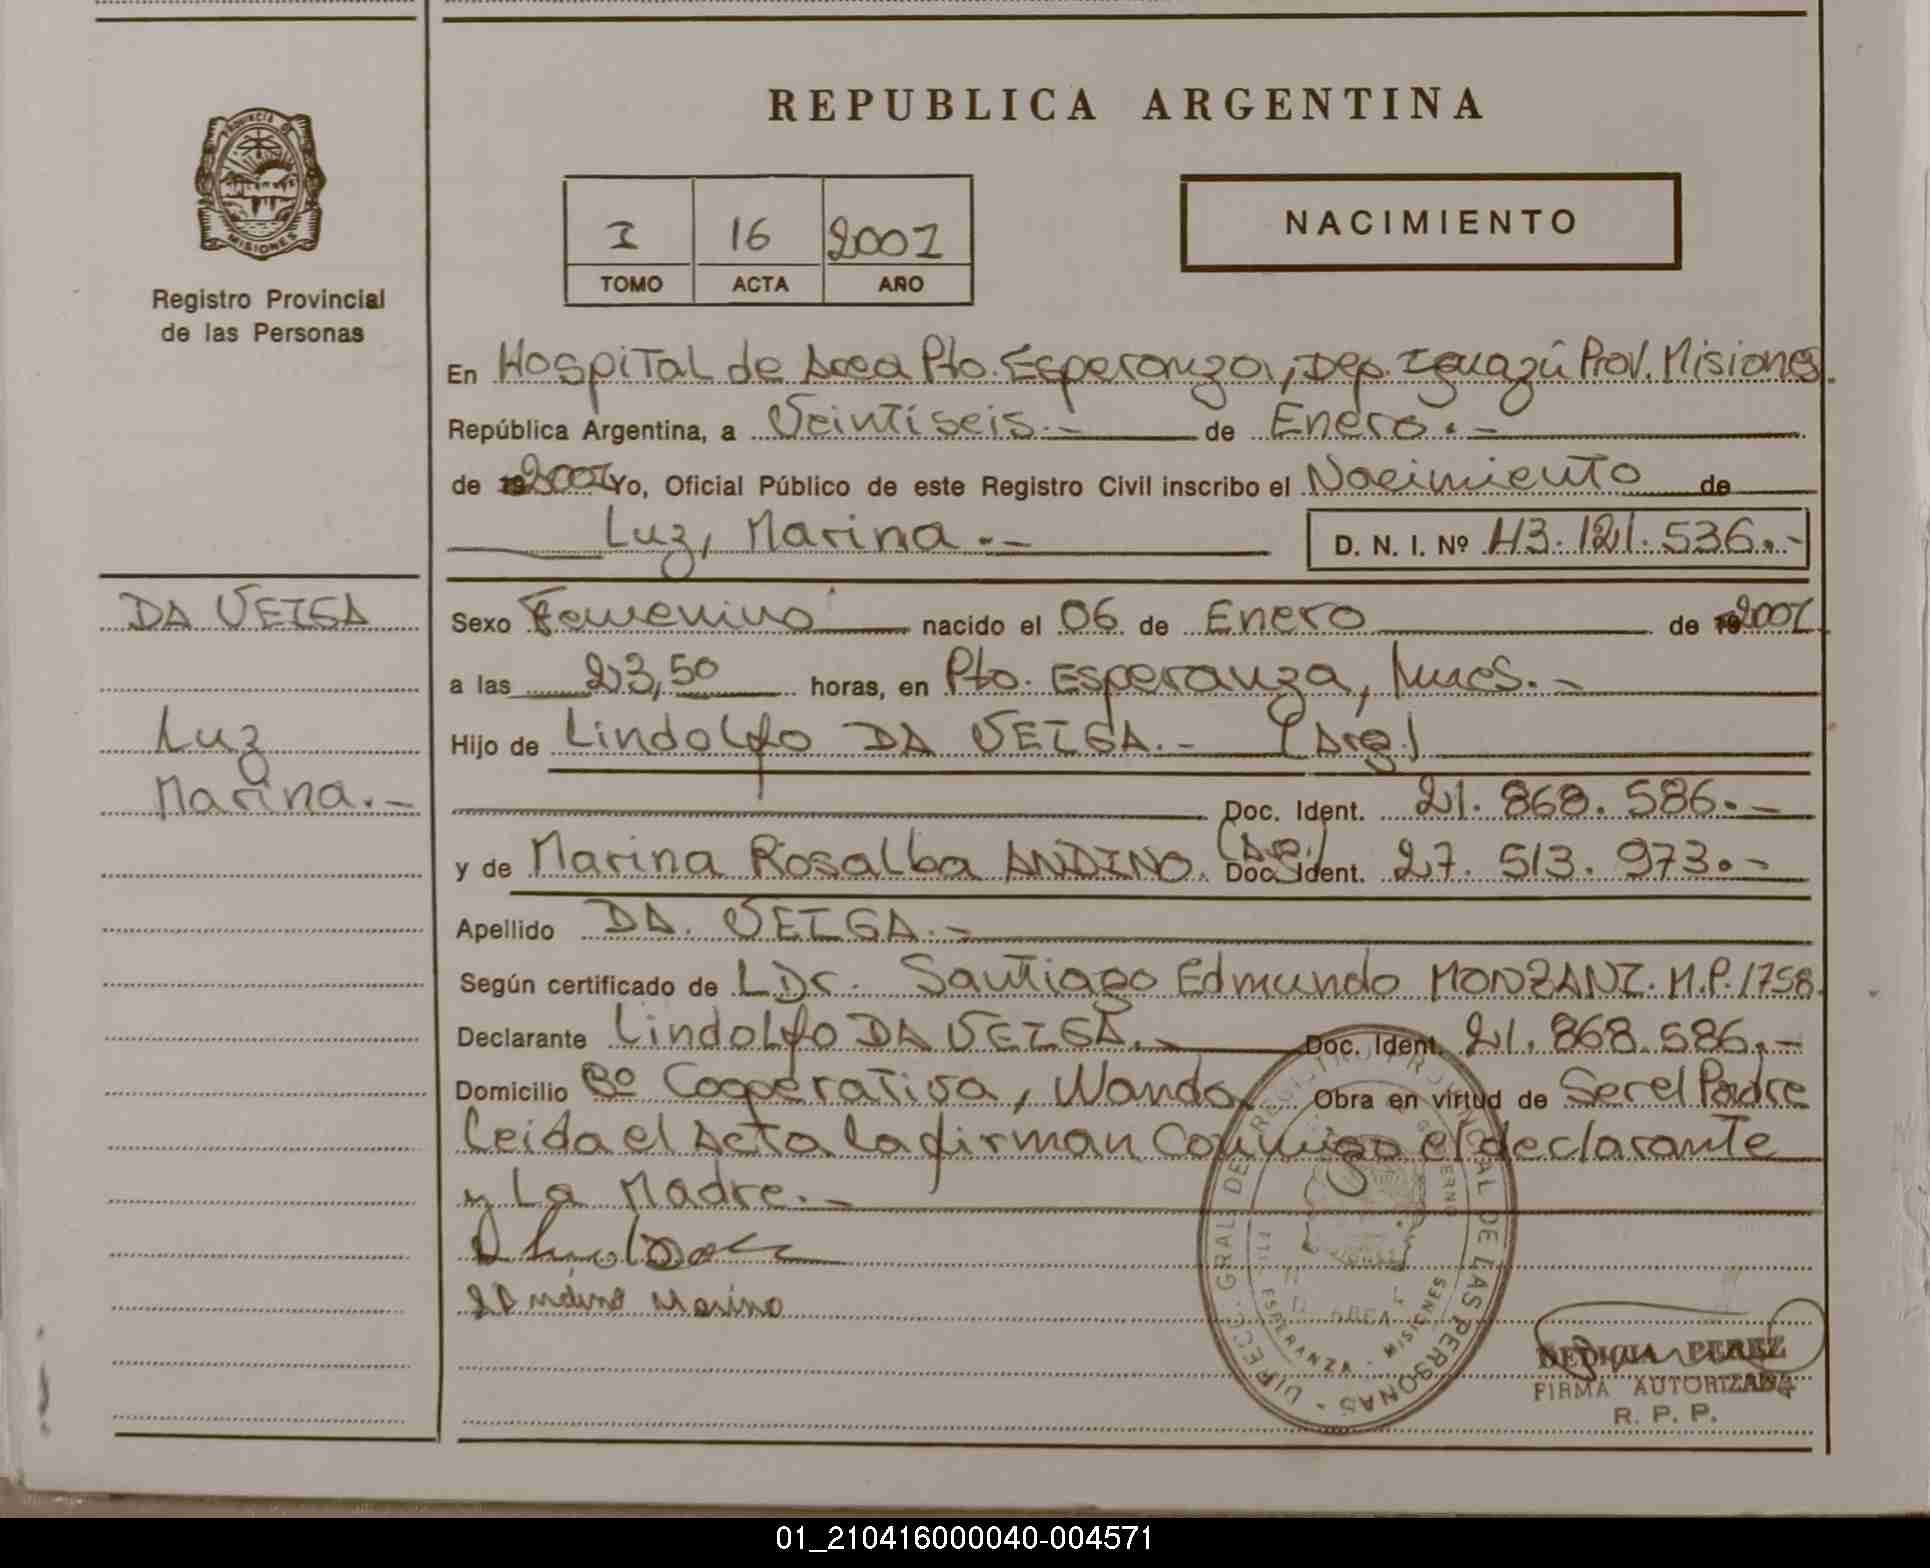 REPUBLICA ARGENTINA
PROVINCIA DE
MISIONES
Registro Provincial
de las Personas
I 16 2001
TOMO ACTA AÑO
NACIMIENTO
En Hospital de Area Pto. Esperanza, Dep. Iguazú Prov. Misiones.
República Argentina, a Veintiseis.- de Enero.-
de 2001 Yo, Oficial Público de este Registro Civil inscribo el Nacimiento de
Luz, Marina.- D. N. I. Nº 43.121.536.-
DA VEIGA
Sexo Femenino nacido el 06 de Enero de 2001
a las 23,50 horas, en Pto. Esperanza, Mnes.-
Luz
Hijo de Lindolfo DA VEIGA.- (Arg.)
Marina.-
Doc. Ident. 21.868.586.-
y de Marina Rosalba ANDINO. (Arg.) Doc. Ident. 27.513.973.-
Apellido DA VEIGA.-
Según certificado de LDr. Santiago Edmundo MONZANI. M.P. 1758.
Declarante Lindolfo DA VEIGA.- Doc. Ident. 21.868.586.-
Domicilio Bº Cooperativa, Wanda. Obra en virtud de Ser el Padre
Leida el Acta la firman Conmigo el declarante
y La Madre.-
Andino Marina
DIRECC. GRAL. DE REGISTRO PROVINCIAL DE LAS PERSONAS
ESPERANZA - MISIONES
PEREZ
FIRMA AUTORIZADA
R. P. P.
01_210416000040-004571